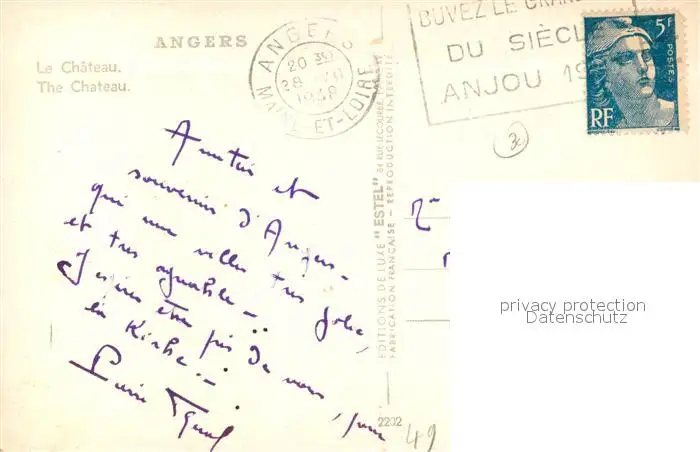 ANGERS
Le Château.
The Chateau.
ANGERS
20 30
28
1948
MAINE-ET-LOIRE
BUVEZ LE GRAND
DU SIÈCL
ANJOU 19
5F
POSTES
RF
et
souvenir d'Angers-
qui une ville très jolie,
et très agréable-
J'espère être près de vous, pour
la
Pierre
EDITIONS DE LUXE "ESTEL" 61 RUE LECOURBE PARIS
FABRICATION FRANÇAISE - REPRODUCTION INTERDITE
2202
49
privacy protection
Datenschutz